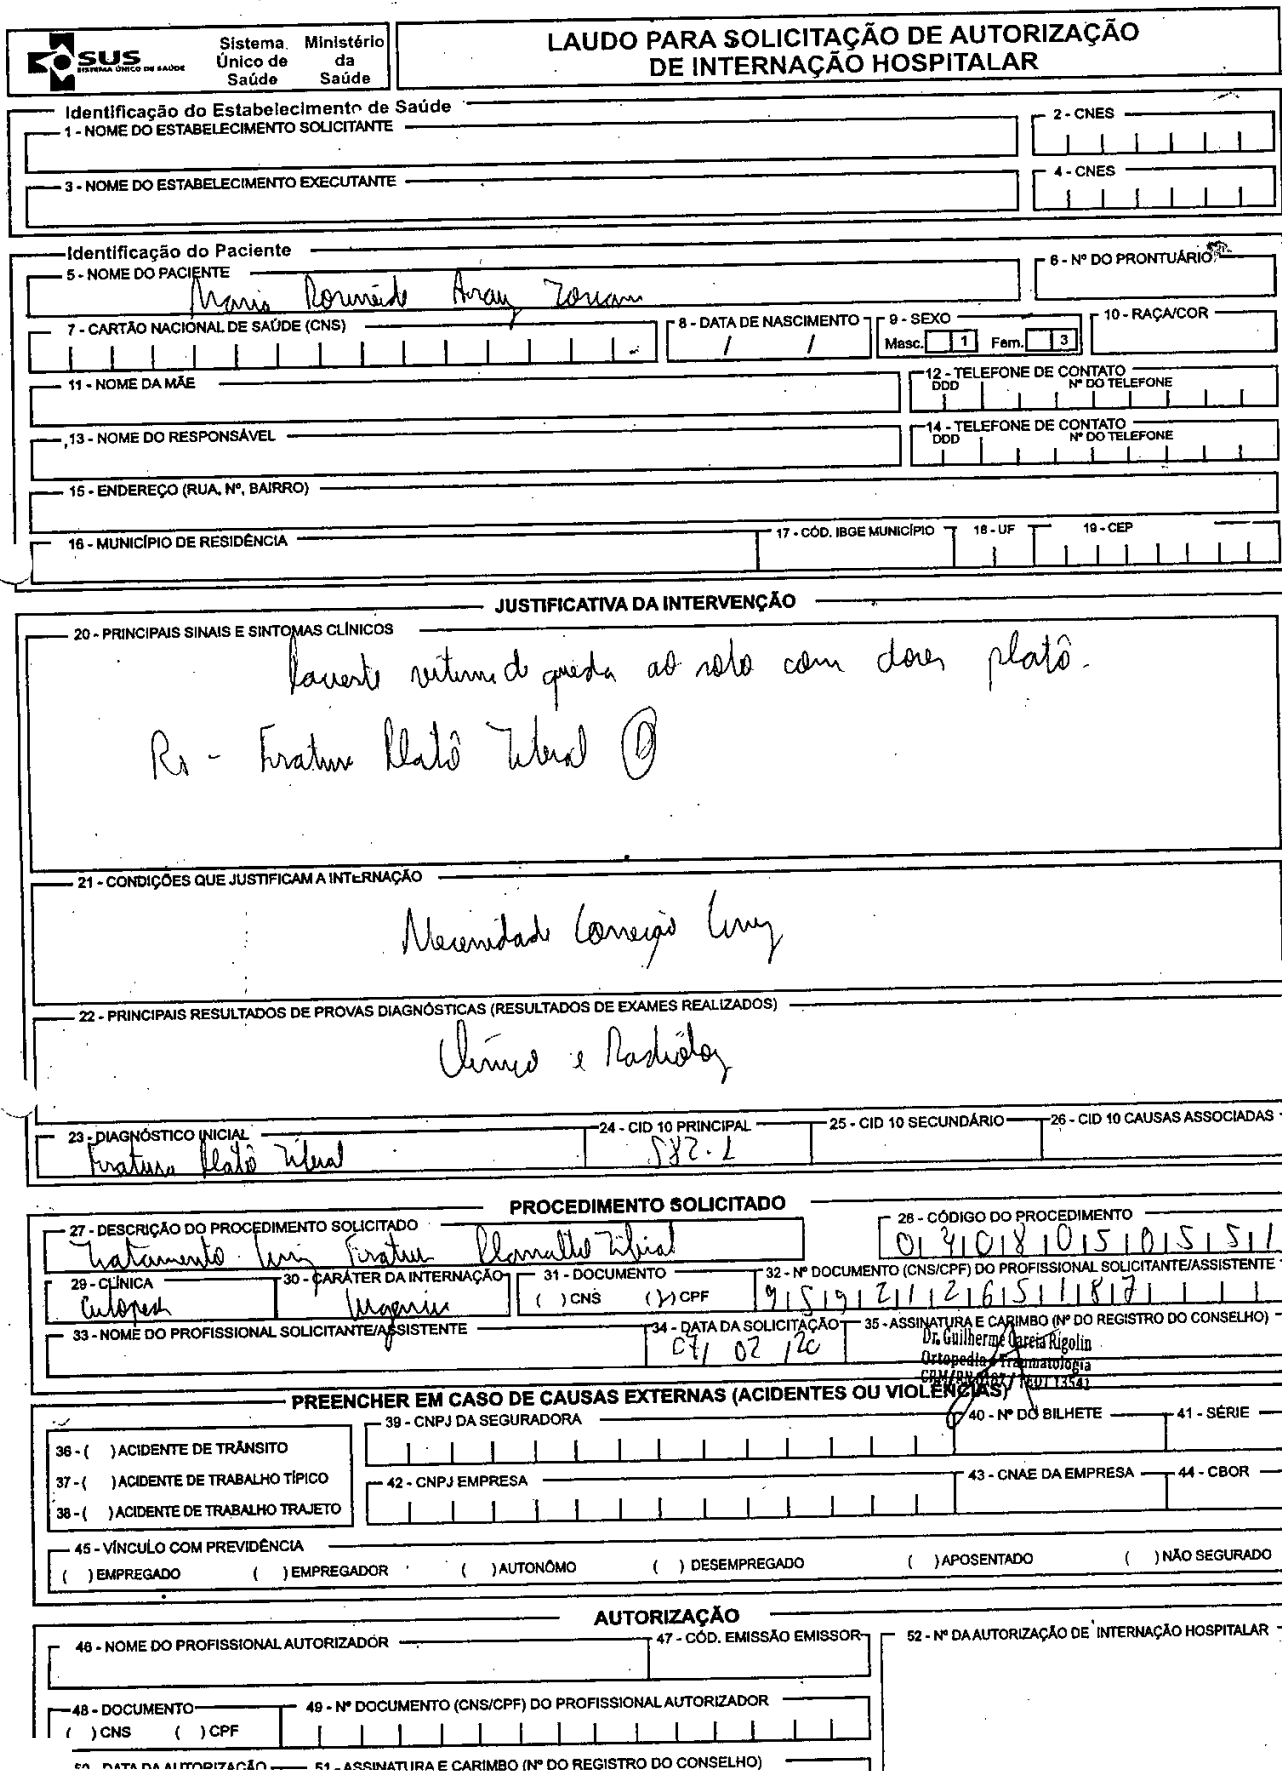 SUS
SISTEMA ÚNICO DE SAÚDE
Sistema Único de Saúde
Ministério da Saúde
LAUDO PARA SOLICITAÇÃO DE AUTORIZAÇÃO
DE INTERNAÇÃO HOSPITALAR
Identificação do Estabelecimento de Saúde
1 - NOME DO ESTABELECIMENTO SOLICITANTE
2 - CNES
3 - NOME DO ESTABELECIMENTO EXECUTANTE
4 - CNES
Identificação do Paciente
5 - NOME DO PACIENTE
6 - Nº DO PRONTUÁRIO
Maria
7 - CARTÃO NACIONAL DE SAÚDE (CNS)
8 - DATA DE NASCIMENTO
9 - SEXO
10 - RAÇA/COR
/ /
Masc. 1 Fem. 3
11 - NOME DA MÃE
12 - TELEFONE DE CONTATO
DDD Nº DO TELEFONE
13 - NOME DO RESPONSÁVEL
14 - TELEFONE DE CONTATO
DDD Nº DO TELEFONE
15 - ENDEREÇO (RUA, Nº, BAIRRO)
16 - MUNICÍPIO DE RESIDÊNCIA
17 - CÓD. IBGE MUNICÍPIO
18 - UF
19 - CEP
JUSTIFICATIVA DA INTERVENÇÃO
20 - PRINCIPAIS SINAIS E SINTOMAS CLÍNICOS
Paciente vitima de queda ao solo com dores platô.
Rx - Fratura Platô Tibial (D)
21 - CONDIÇÕES QUE JUSTIFICAM A INTERNAÇÃO
Necessidade Correção Cirurg
22 - PRINCIPAIS RESULTADOS DE PROVAS DIAGNÓSTICAS (RESULTADOS DE EXAMES REALIZADOS)
Clínico e Radiolog
23 - DIAGNÓSTICO INICIAL
24 - CID 10 PRINCIPAL
25 - CID 10 SECUNDÁRIO
26 - CID 10 CAUSAS ASSOCIADAS
Fratura Platô Tibial
S82.1
PROCEDIMENTO SOLICITADO
27 - DESCRIÇÃO DO PROCEDIMENTO SOLICITADO
28 - CÓDIGO DO PROCEDIMENTO
Tratamento Cirur Fratura Planalto Tibial
0408050551
29 - CLÍNICA
30 - CARÁTER DA INTERNAÇÃO
31 - DOCUMENTO
32 - Nº DOCUMENTO (CNS/CPF) DO PROFISSIONAL SOLICITANTE/ASSISTENTE
Urgência
( ) CNS ( ) CPF
95921265187
33 - NOME DO PROFISSIONAL SOLICITANTE/ASSISTENTE
34 - DATA DA SOLICITAÇÃO
35 - ASSINATURA E CARIMBO (Nº DO REGISTRO DO CONSELHO)
07/ 02 /20
Dr. Guilherme Garcia Rigolin
Ortopedia e Traumatologia
TEOT 13541
PREENCHER EM CASO DE CAUSAS EXTERNAS (ACIDENTES OU VIOLÊNCIAS)
36 - ( ) ACIDENTE DE TRÂNSITO
39 - CNPJ DA SEGURADORA
40 - Nº DO BILHETE
41 - SÉRIE
37 - ( ) ACIDENTE DE TRABALHO TÍPICO
42 - CNPJ EMPRESA
43 - CNAE DA EMPRESA
44 - CBOR
38 - ( ) ACIDENTE DE TRABALHO TRAJETO
45 - VÍNCULO COM PREVIDÊNCIA
( ) EMPREGADO ( ) EMPREGADOR ( ) AUTONÔMO ( ) DESEMPREGADO ( ) APOSENTADO ( ) NÃO SEGURADO
AUTORIZAÇÃO
46 - NOME DO PROFISSIONAL AUTORIZADOR
47 - CÓD. EMISSÃO EMISSOR
52 - Nº DA AUTORIZAÇÃO DE INTERNAÇÃO HOSPITALAR
48 - DOCUMENTO
49 - Nº DOCUMENTO (CNS/CPF) DO PROFISSIONAL AUTORIZADOR
( ) CNS ( ) CPF
50 - DATA DA AUTORIZAÇÃO
51 - ASSINATURA E CARIMBO (Nº DO REGISTRO DO CONSELHO)